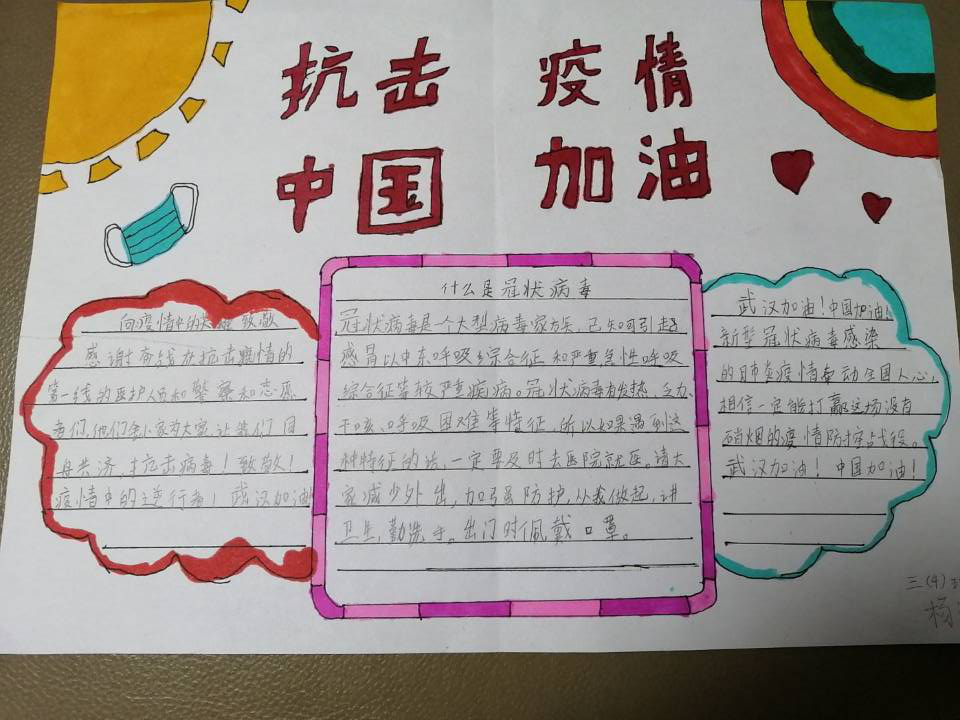 抗击 疫情
中国 加油
向疫情中的英雄致敬
感谢奋线在抗击疫情的
第一线的医护人员和警察和志愿
者们,他们舍小家为大家,让我们同
舟共济,抗击病毒!致敬!
疫情中的逆行者!武汉加油
什么是冠状病毒
冠状病毒是一个大型病毒家族,已知可引起
感冒以中东呼吸综合征和严重急性呼吸
综合征等较严重疾病。冠状病毒有发热、乏力、
干咳、呼吸困难等特征,所以如果遇到这
种特征的话,一定要及时去医院就医。请大
家减少外出,加强防护,从我做起,讲
卫生,勤洗手。出门时佩戴口罩。
武汉加油!中国加油!
新型冠状病毒感染
的肺炎疫情牵动全国人心,
相信一定能打赢这场没有
硝烟的疫情防控战役。
武汉加油!中国加油!
三(4)
杨